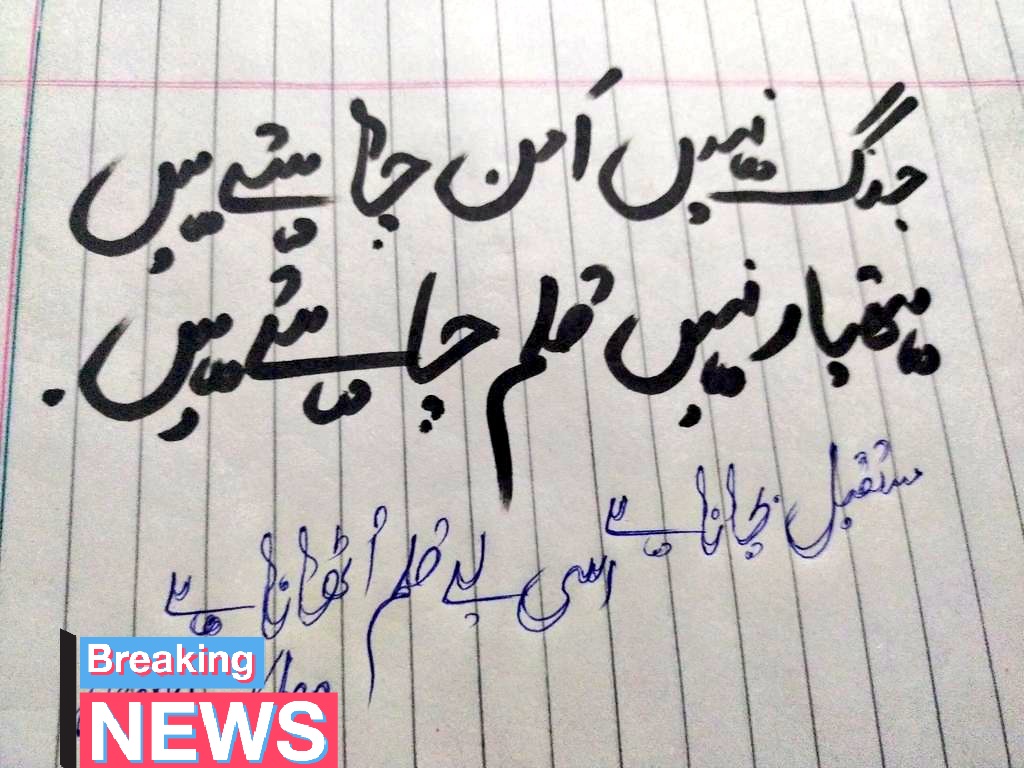 جنگ نہیں اَمن چاہتے ہیں
ہتھیار نہیں قلم چاہتے ہیں.
مستقبل بچانا ہے
اسی لیے قلم اُٹھانا ہے
Breaking
NEWS